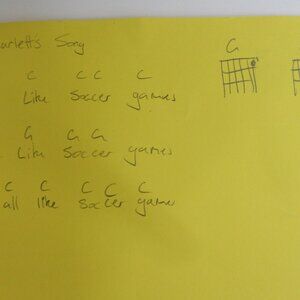 arlett's Song
G
C C C C
Like Soccer games
G G G
Like Soccer games
C C C C C
all like Soccer games